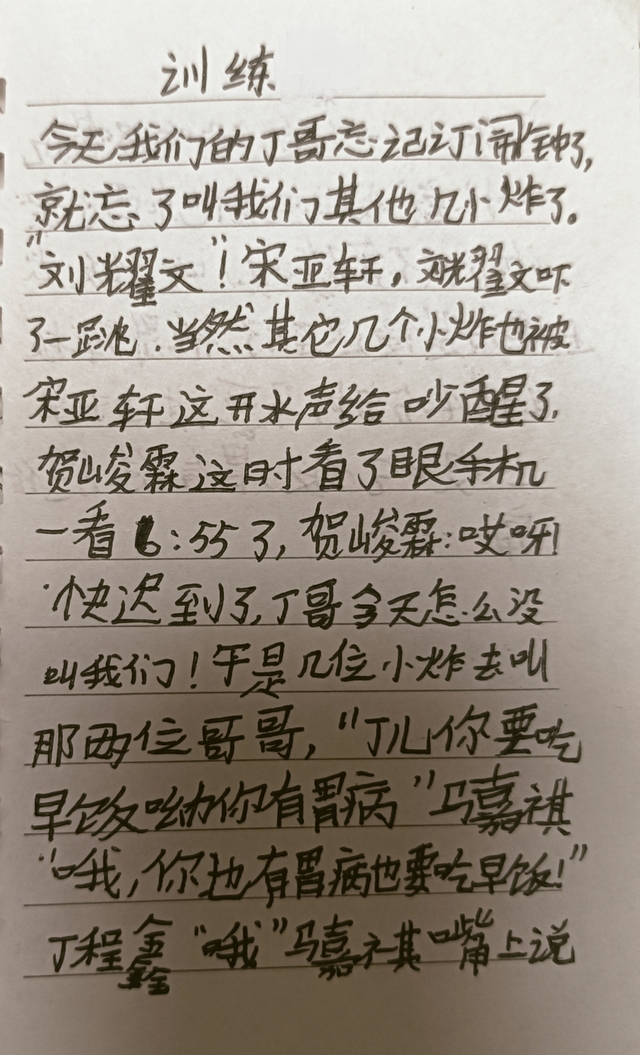 训练
今天我们的丁哥忘记订闹钟了,
就忘了叫我们其他几小炸了。
"刘耀文"！宋亚轩，刘耀文吓
了一跳.当然其它几个小炸也被
宋亚轩这开水声给吵醒了.
贺峻霖这时看了眼手机
一看6:55了,贺峻霖:哎呀
快迟到了,丁哥今天怎么没
叫我们！于是几位小炸去叫
那两位哥哥,"丁儿你要吃
早饭呦你有胃病"马嘉祺
"哦,你也有胃病也要吃早饭!"
丁程鑫"哦"马嘉祺嘴上说